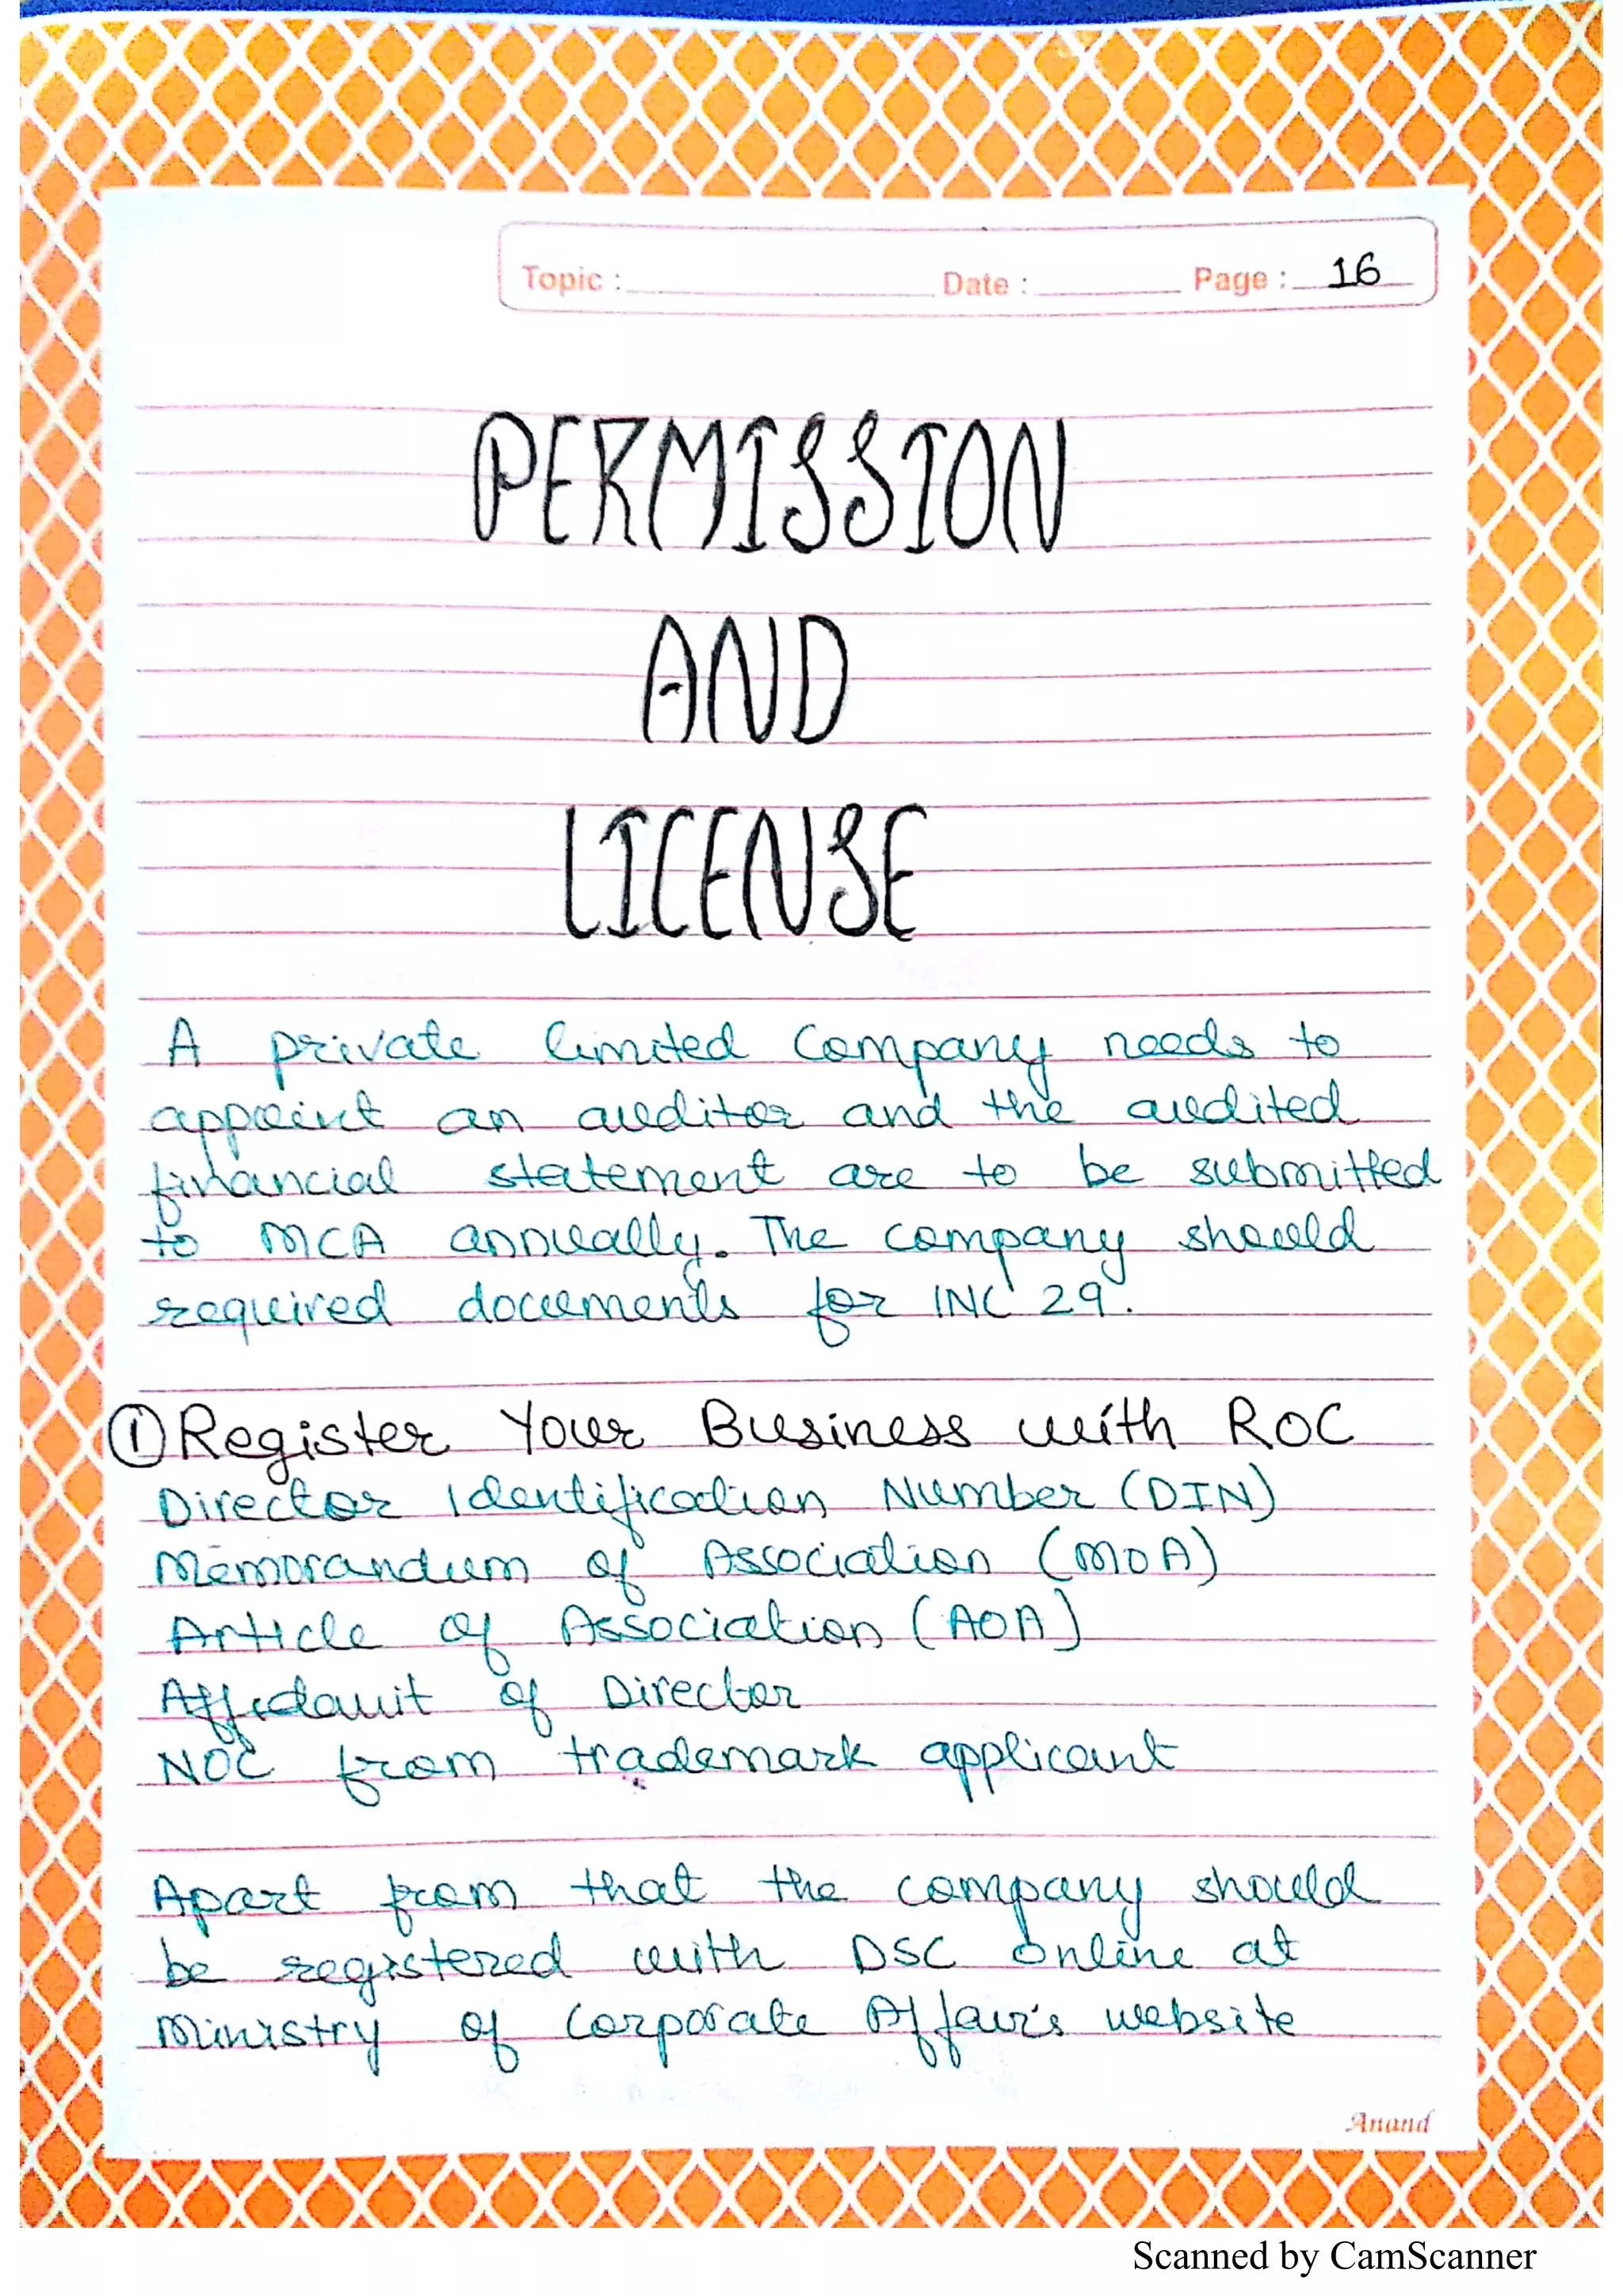 Topic : Date : Page : 16
PERMISSION
AND
LICENSE
A private limited Company needs to
appoint an auditor and the audited
financial statement are to be submitted
to MCA annually. The company should
required documents for INC 29.
① Register Your Business with ROC
Director Identification Number (DIN)
Memorandum of Association (MOA)
Article of Association (AOA)
Affidavit of Director
NOC from trademark applicant
Apart from that the company should
be registered with DSC online at
Ministry of Corporate Affair's website
Anand
Scanned by CamScanner